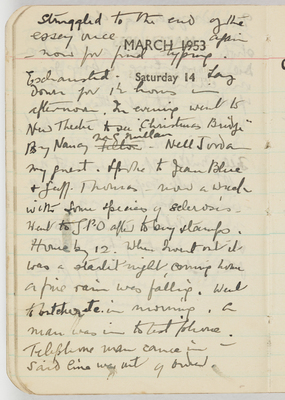 Struggled to the end of the
essay once again
MARCH 1953
– now for final typing.
Exhausted. Saturday 14 Lay
down for 1½ hours in
afternoon. In evening went to
New Theatre to see "Christmas Bridge"
By Nancy – Nell Jordan
my guest. Spoke to Jean Blue
& Jeff. Thomas now a wreck
with some species of sclerosis.
Went to GPO after to buy stamps.
Home by 12. When I went out it
was a starlit night, coming home
a fine rain was falling. Went
to in morning. A
man was in to test phone.
Telephone man came in –
said line was out of order